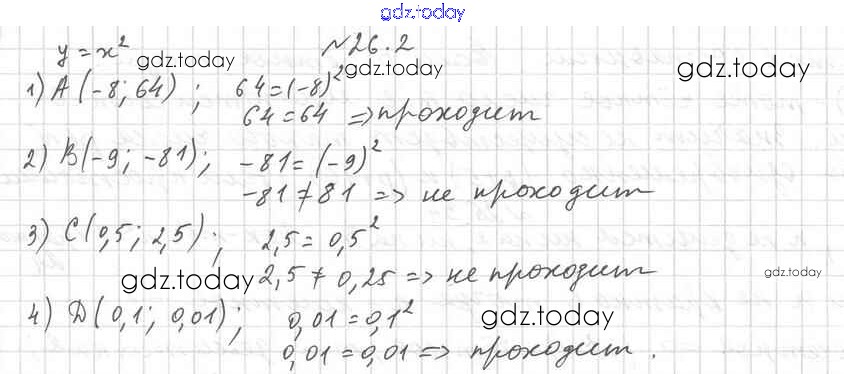 gdz.today
y = x² №26.2
gdz.today gdz.today gdz.today
1) A (-8; 64) ; 64 = (-8)²
64 = 64 => проходит
2) B (-9; -81); -81 = (-9)²
-81 ≠ 81 => не проходит
3) C (0,5; 2,5); 2,5 = 0,5²
gdz.today 2,5 ≠ 0,25 => не проходит gdz.today
4) D (0,1; 0,01); 0,01 = 0,1² gdz.today
0,01 = 0,01 => проходит.